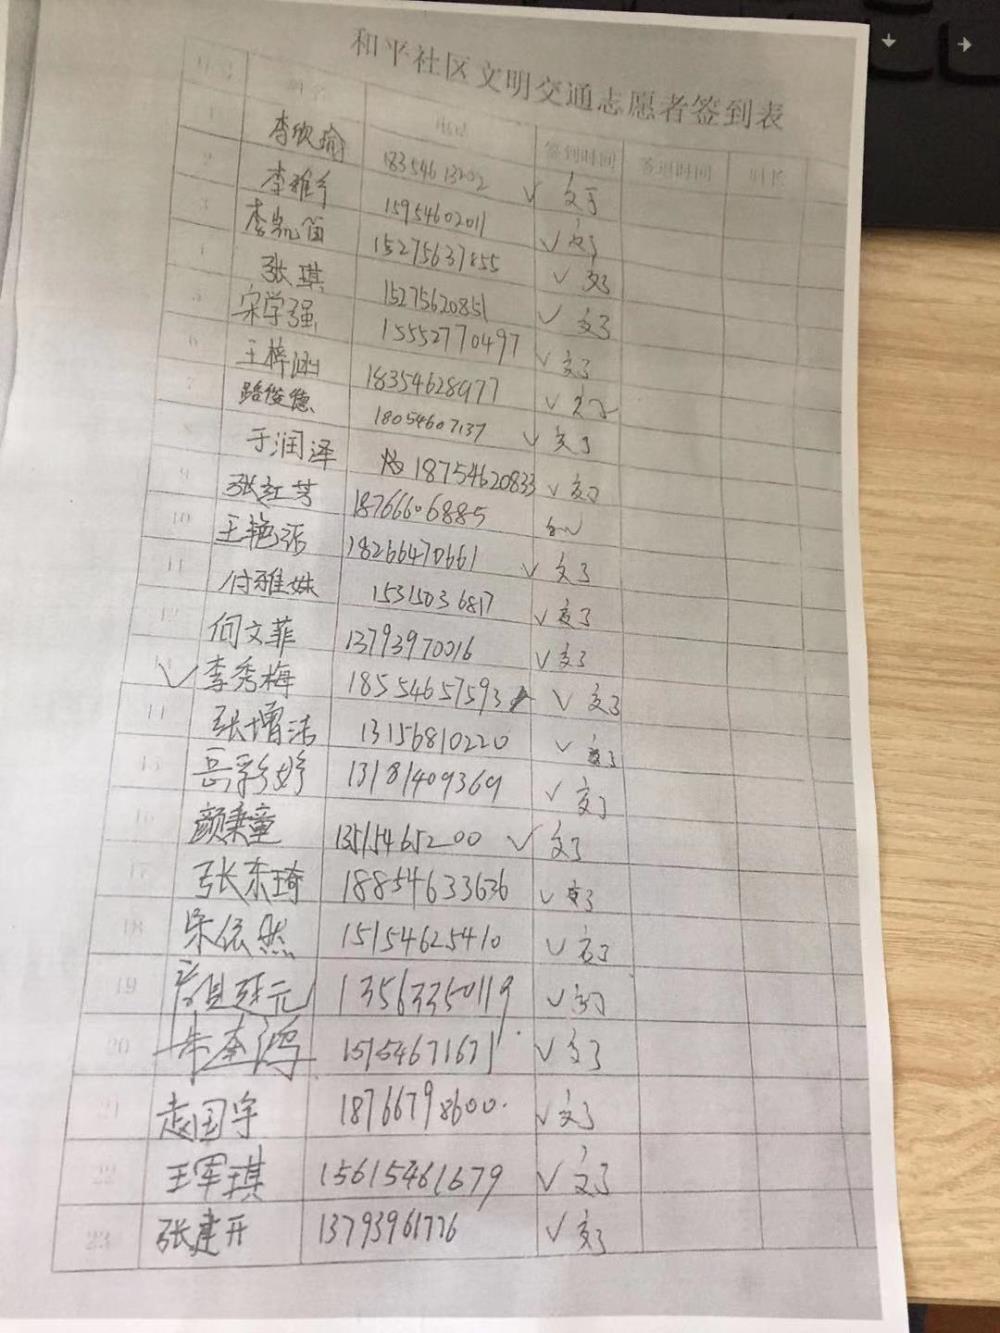 和平社区文明交通志愿者签到表
姓名 电话 签到时间 签退时间 时长
1 李欣瑜 18354613202 √ 交了
2 15954602011 √ 交了
3 李凯笛 15275637855 √ 交了
4 张琪 15275620851 √ 交了
5 宋学强 15552770497 √ 交了
6 王梓涵 18354628977 √
7 路俊德 18054607137 √ 交了
于润泽 18754620833 √ 交了
9 张红芳 18766606885
10 王艳 18266470661 √ 交了
11 付雅姝 15315036817 √ 交了
12 何文菲 13793970016 √ 交了
√ 李秀梅 18554657593 √ 交了
张增洁 13156810220 √ 交了
15 岳彩婷 13181409369 √ 交了
16 颜秉童 13515465200 √ 交了
17 张东琦 18854633636 √ 交了
18 宋依然 15154625410 √ 交了
19 13563350119 √ 交了
20 朱奎鸿 15154671671 √ 交了
21 赵国宇 18766798600 √ 交了
22 王军琪 15615461679 √ 交了
23 张建开 13793961776 √ 交了